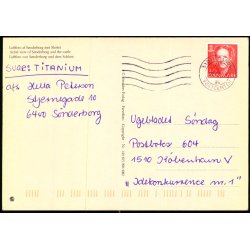 Luftfoto af Sønderborg med Slottet
Aerial view of Sønderborg and the castle
Luftfoto von Sønderborg und dem Schloss
SVAR: TITANIUM
afs Jella Peterson
Stjernegade 10
6400 Sønderborg
Ugebladet Søndag
Postboks 604
1510 København V
"Idékonkurrence nr. 1"
DANMARK